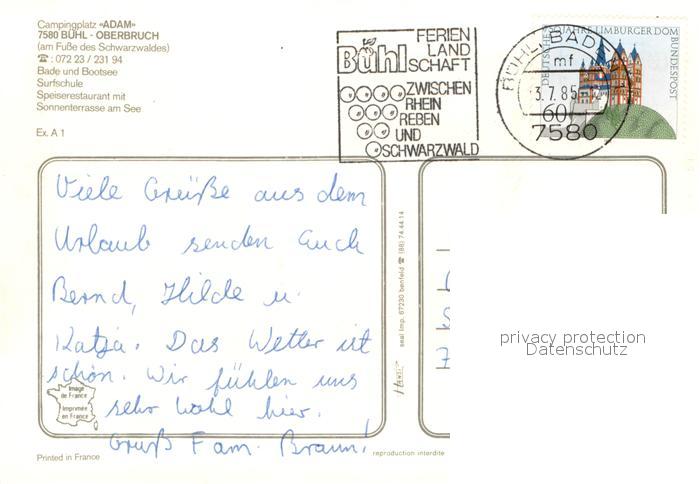 Campingplatz «ADAM»
7580 BÜHL - OBERBRUCH
(am Fuße des Schwarzwaldes)
☎ : 072 23 / 231 94
Bade und Bootsee
Surfschule
Speiserestaurant mit
Sonnenterrasse am See
Ex. A 1
Bühl
FERIEN
LAND
SCHAFT
ZWISCHEN
RHEIN
REBEN
UND
SCHWARZWALD
BÜHL, BADEN
mf
3.7.85
7580
JAHRE LIMBURGER DOM
DEUTSCHE BUNDESPOST
60
Viele Grüße aus dem
Urlaub senden Euch
Bernd, Hilde u.
Katja. Das Wetter ist
schön. Wir fühlen uns
sehr wohl hier.
Gruß Fam. Braun!
Image
de France
Imprimée
en France
Printed in France
reproduction interdite
seal imp. 67230 benfeld ☎ (88) 74.44.14
privacy protection
Datenschutz